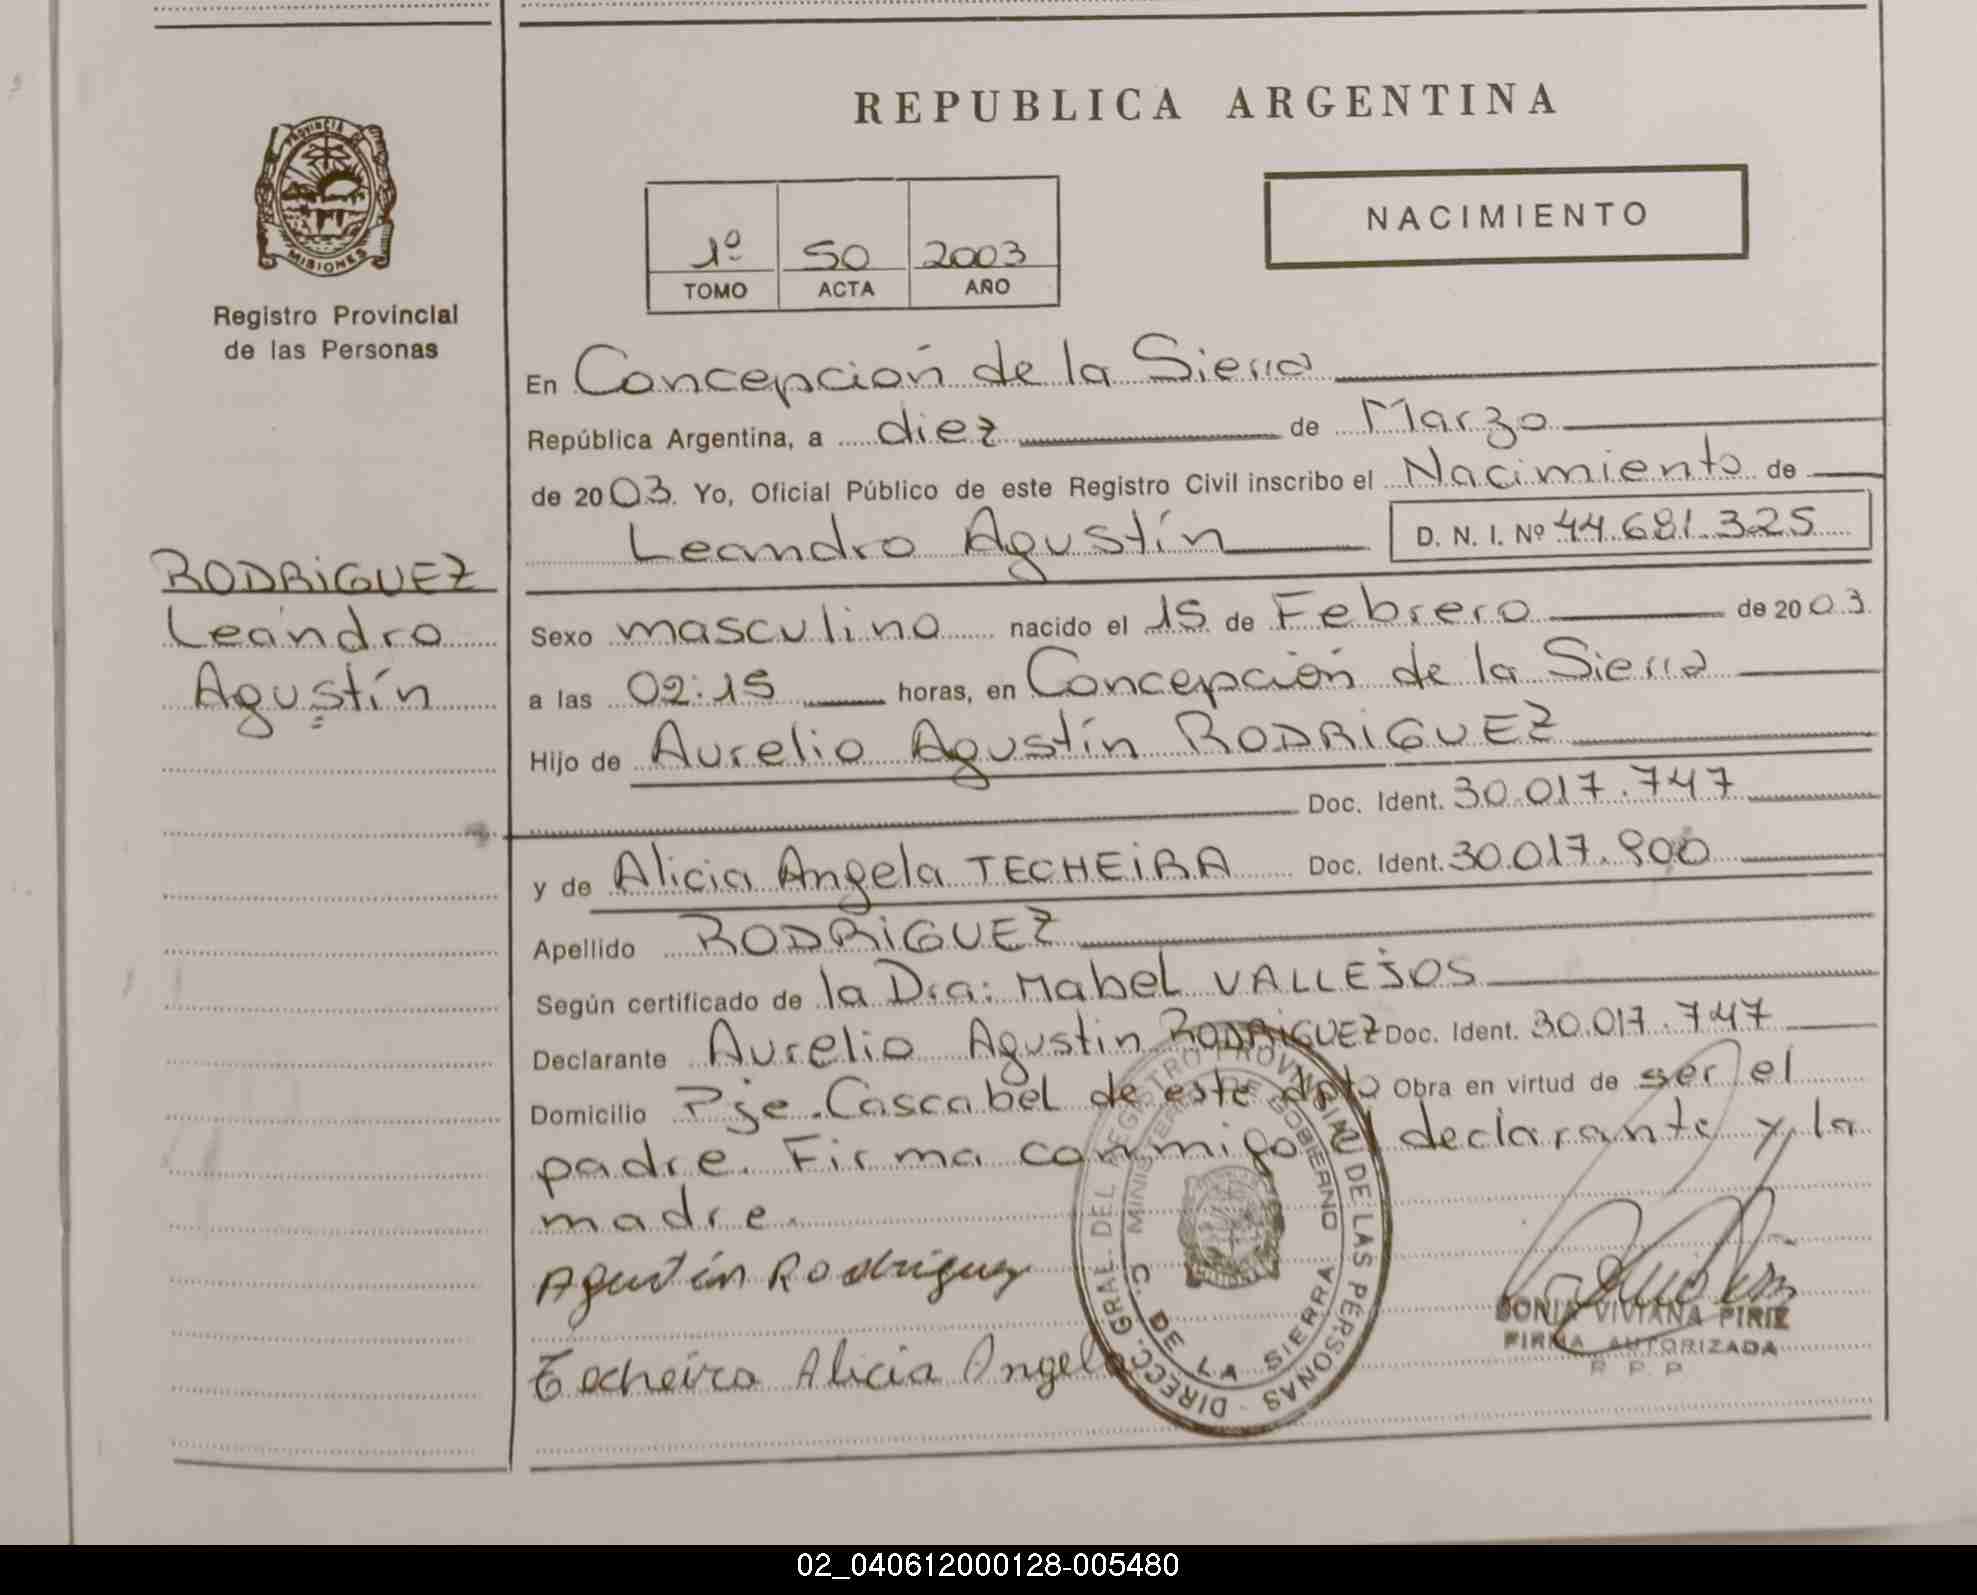 REPUBLICA ARGENTINA
NACIMIENTO
1º 50 2003
TOMO ACTA AÑO
PROVINCIA DE
MISIONES
Registro Provincial
de las Personas
RODRIGUEZ
Leandro
Agustín
En Concepción de la Sierra
República Argentina, a diez de Marzo
de 2003. Yo, Oficial Público de este Registro Civil inscribo el Nacimiento de
Leandro Agustín D. N. I. Nº 44.681.325
Sexo masculino nacido el 15 de Febrero de 2003.
a las 02:15 horas, en Concepción de la Sierra
Hijo de Aurelio Agustín RODRIGUEZ
Doc. Ident. 30.017.747
y de Alicia Angela TECHEIRA Doc. Ident. 30.017.900
Apellido RODRIGUEZ
Según certificado de la Dra: Mabel VALLEJOS
Declarante Aurelio Agustin RODRIGUEZ Doc. Ident. 30.017.747
Domicilio Pje. Cascabel de este dpto Obra en virtud de ser el
padre. Firma conmigo el declarante y la
madre.
Agustín Rodriguez
Techeira Alicia Angela
DIRECC. GRAL. DEL REGISTRO PROVINCIAL DE LAS PERSONAS
MINISTERIO DE GOBIERNO
C. DE LA SIERRA
SONIA VIVIANA PIRIZ
FIRMA AUTORIZADA
R. P. P.
02_040612000128-005480